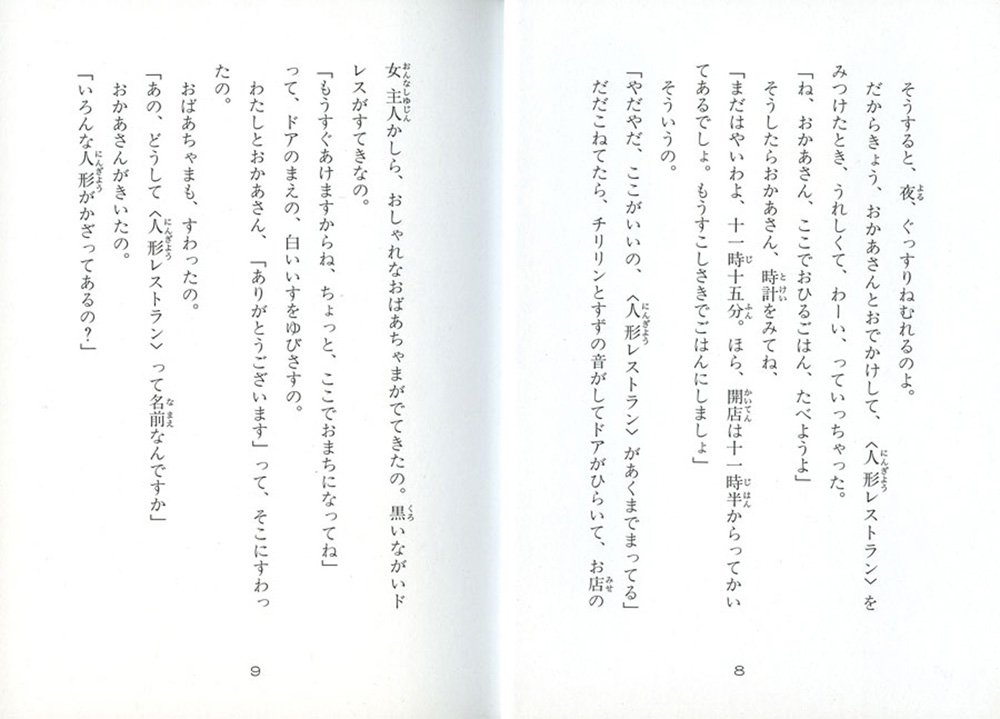 そうすると、夜、ぐっすりねむれるのよ。
だからきょう、おかあさんとおでかけして、〈人形レストラン〉を
みつけたとき、うれしくて、わーい、っていっちゃった。
「ね、おかあさん、ここでおひるごはん、たべようよ」
そうしたらおかあさん、時計をみてね、
「まだはやいわよ、十一時十五分。ほら、開店は十一時半からってかい
てあるでしょ。もうすこしさきでごはんにしましょ」
そういうの。
「やだやだ、ここがいいの、〈人形レストラン〉があくまでまってる」
だだこねてたら、チリリンとすずの音がしてドアがひらいて、お店の
8
女主人かしら、おしゃれなおばあちゃまがでてきたの。黒いながいド
レスがすてきなの。
「もうすぐあけますからね、ちょっと、ここでおまちになってね」
って、ドアのまえの、白いいすをゆびさすの。
わたしとおかあさん、「ありがとうございます」って、そこにすわっ
たの。
おばあちゃまも、すわったの。
「あの、どうして〈人形レストラン〉って名前なんですか」
おかあさんがきいたの。
「いろんな人形がかざってあるの？」
9